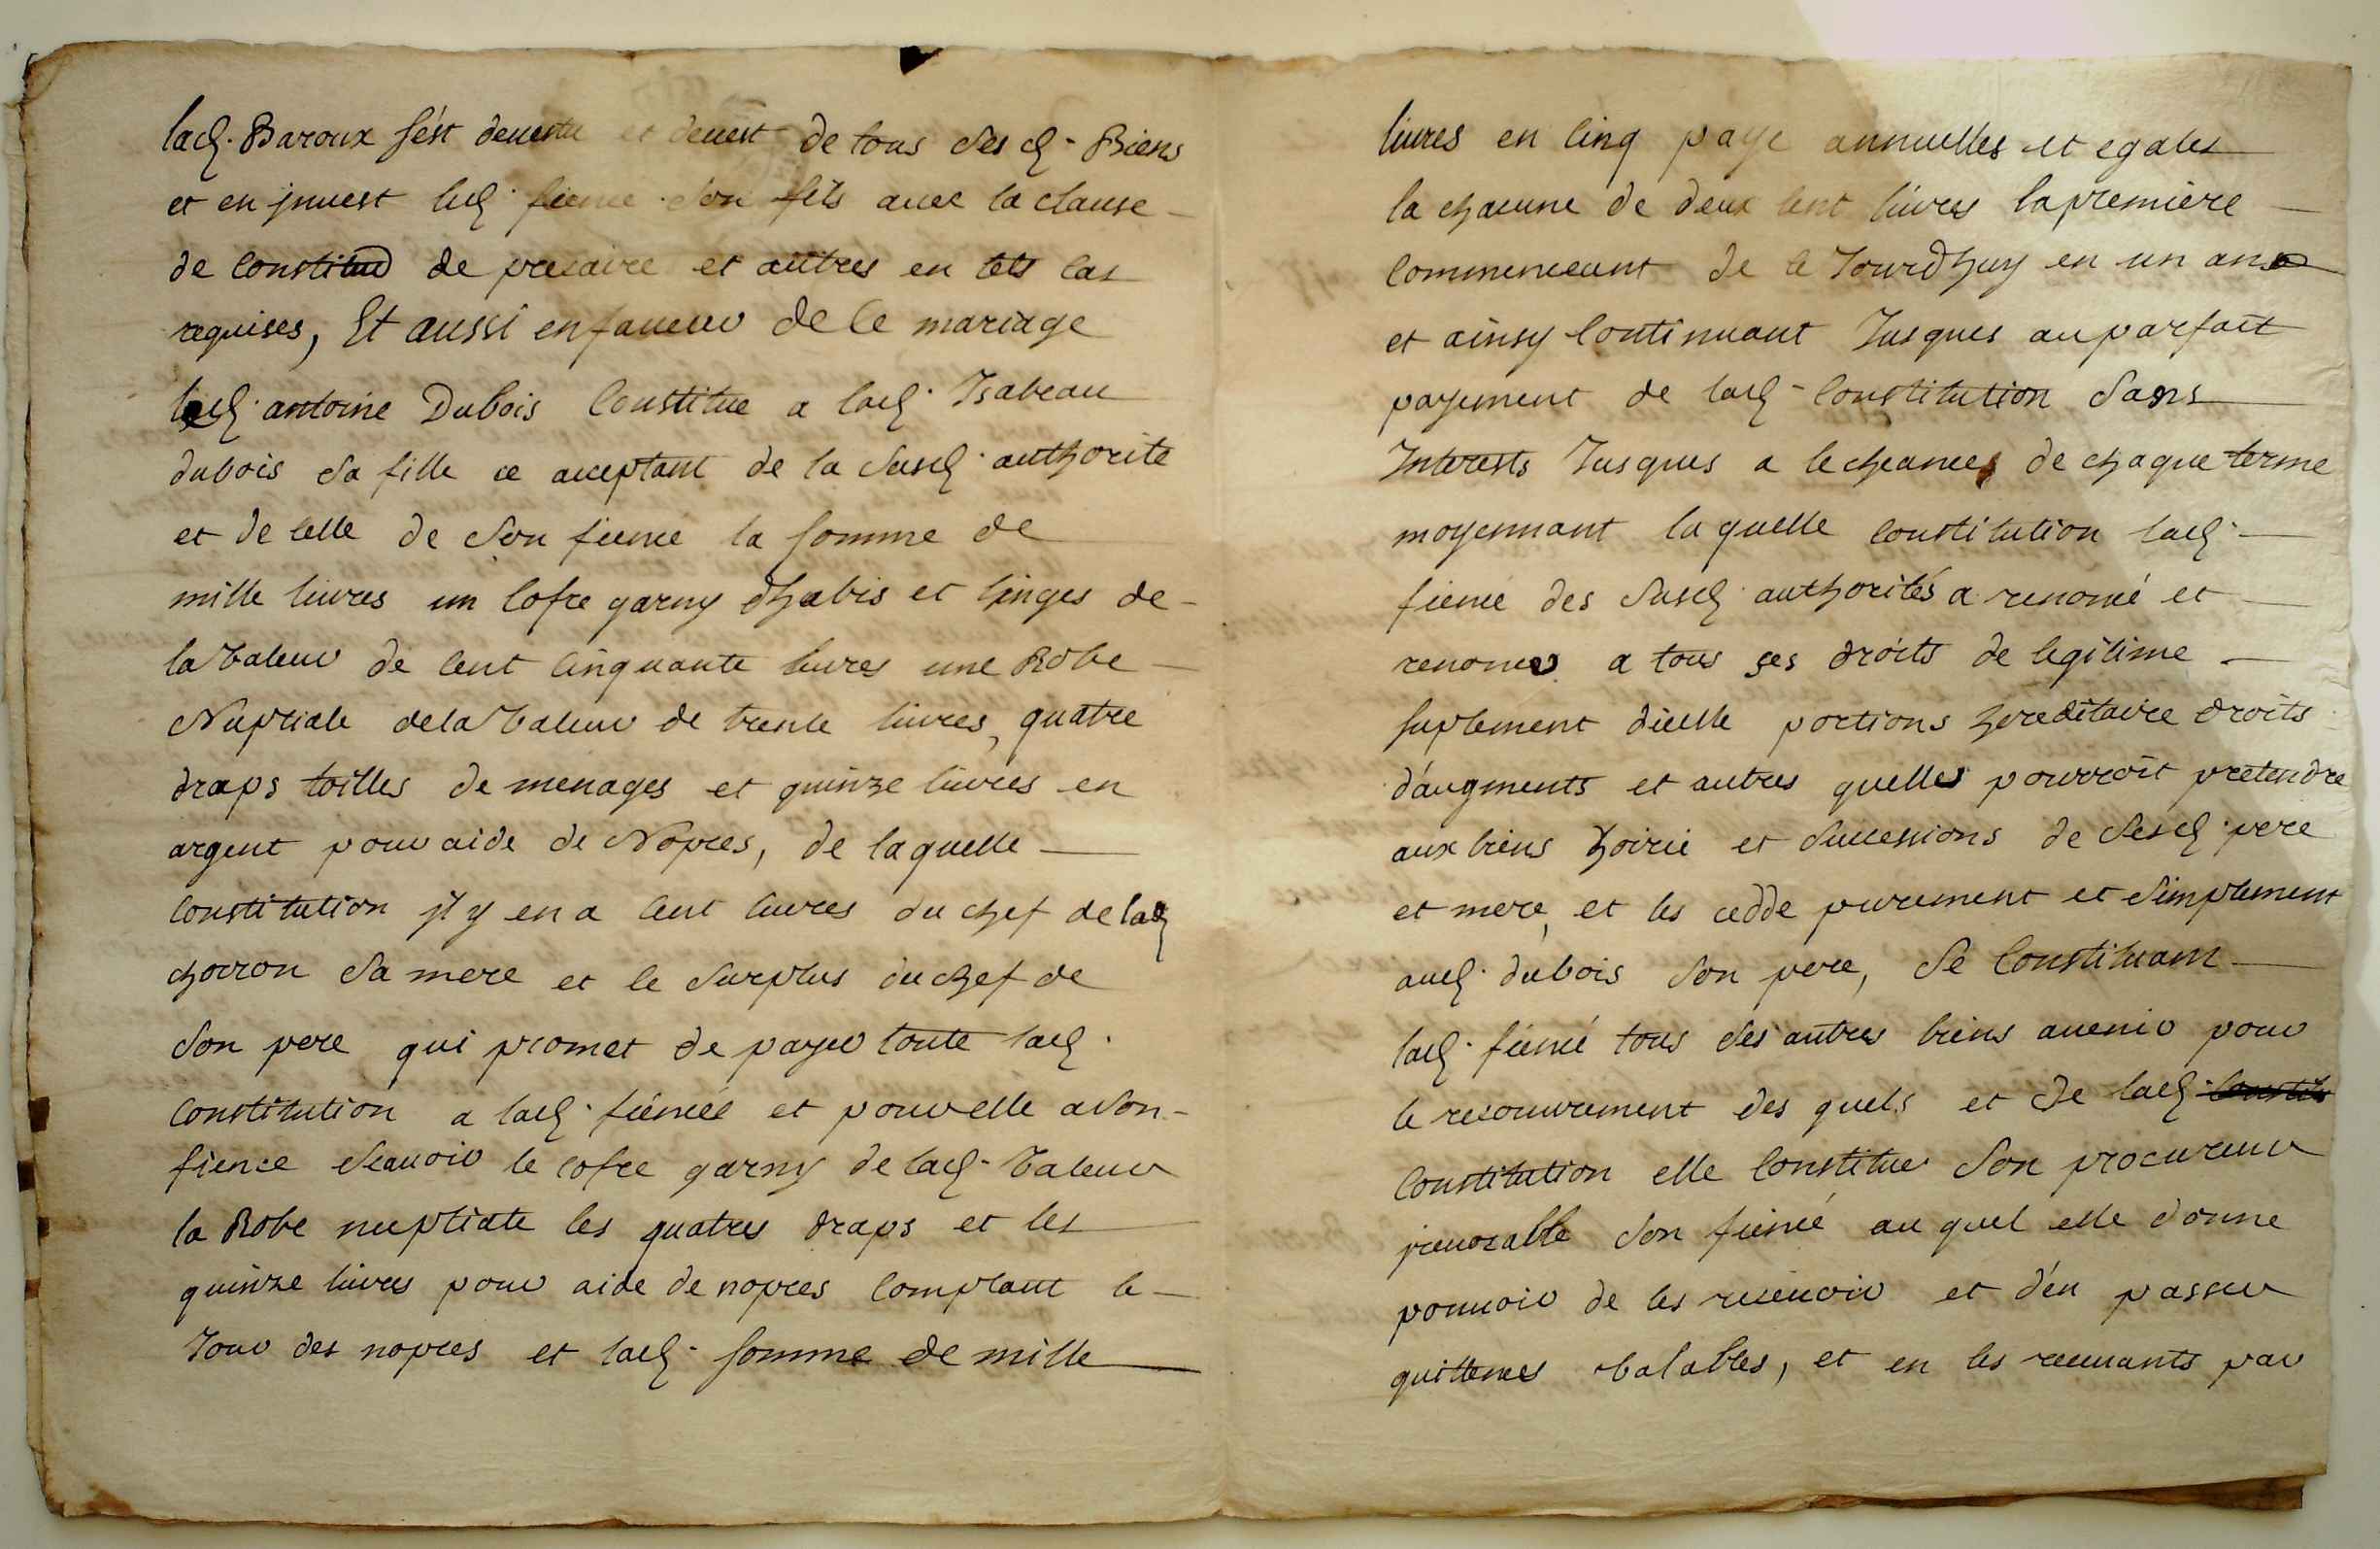 lad. Baroux s'est devestu et devest de tous ses d. Biens
et en jnvest led. fience son fils avec la clause
de constitud de precaire et autres en tels cas
requises, Et aussi enfaveur de ce mariage
led. antoine Dubois Constitue a lad. Isabeau
dubois sa fille ce aceptant de la susd. authorite
et de celle de son fience la somme de
mille livres un cofre garny dhabis et linges de
la valeur de cent cinquante livres une Robe
Nuptiale dela valeur de trente livres, quatre
draps toilles de menages et quinze livres en
argent pour aide de Nopces, de laquelle
constitution jl y en a cent livres du chef de lad
chorron sa mere et le surplus du chef de
son pere qui promet de payer toute lad.
constitution a lad. fiencée et pour elle a son
fience scavoir le cofre garny de lad. valeur
la Robe nuptiale les quatres draps et les
quinze livres pour aide de nopces comptant le
Jour des nopces et lad. somme de mille
livres en cinq paye annuelles et egales
la chacune de deux cent livres la premiere
commenceant de ce Jourdhuy en un an
et ainsy continuant Jusques au parfait
payement de lad. constitution sans
Interests Jusques a lecheance de chaque terme
moyennant la quelle constitution lad.
fiencé des susd. authorités a renoncé et
renonce a tous ses droits de legitime
suplement d'icelle portions hereditaire droits
d'augments et autres quelles pourroit pretendre
aux biens hoirie et successions de sesd. pere
et mere, et les cedde purement et simplement
aud. dubois son pere, se Constituant
lad. fiencé tous ses autres biens avenir pour
le recouvrement des quels et de lad. constit
Constitution elle Constitue son procureur
jrrevocable son fiencé au quel elle donne
pouvoir de les recevoir et d'en passer
quittences valables, et en les recevants par